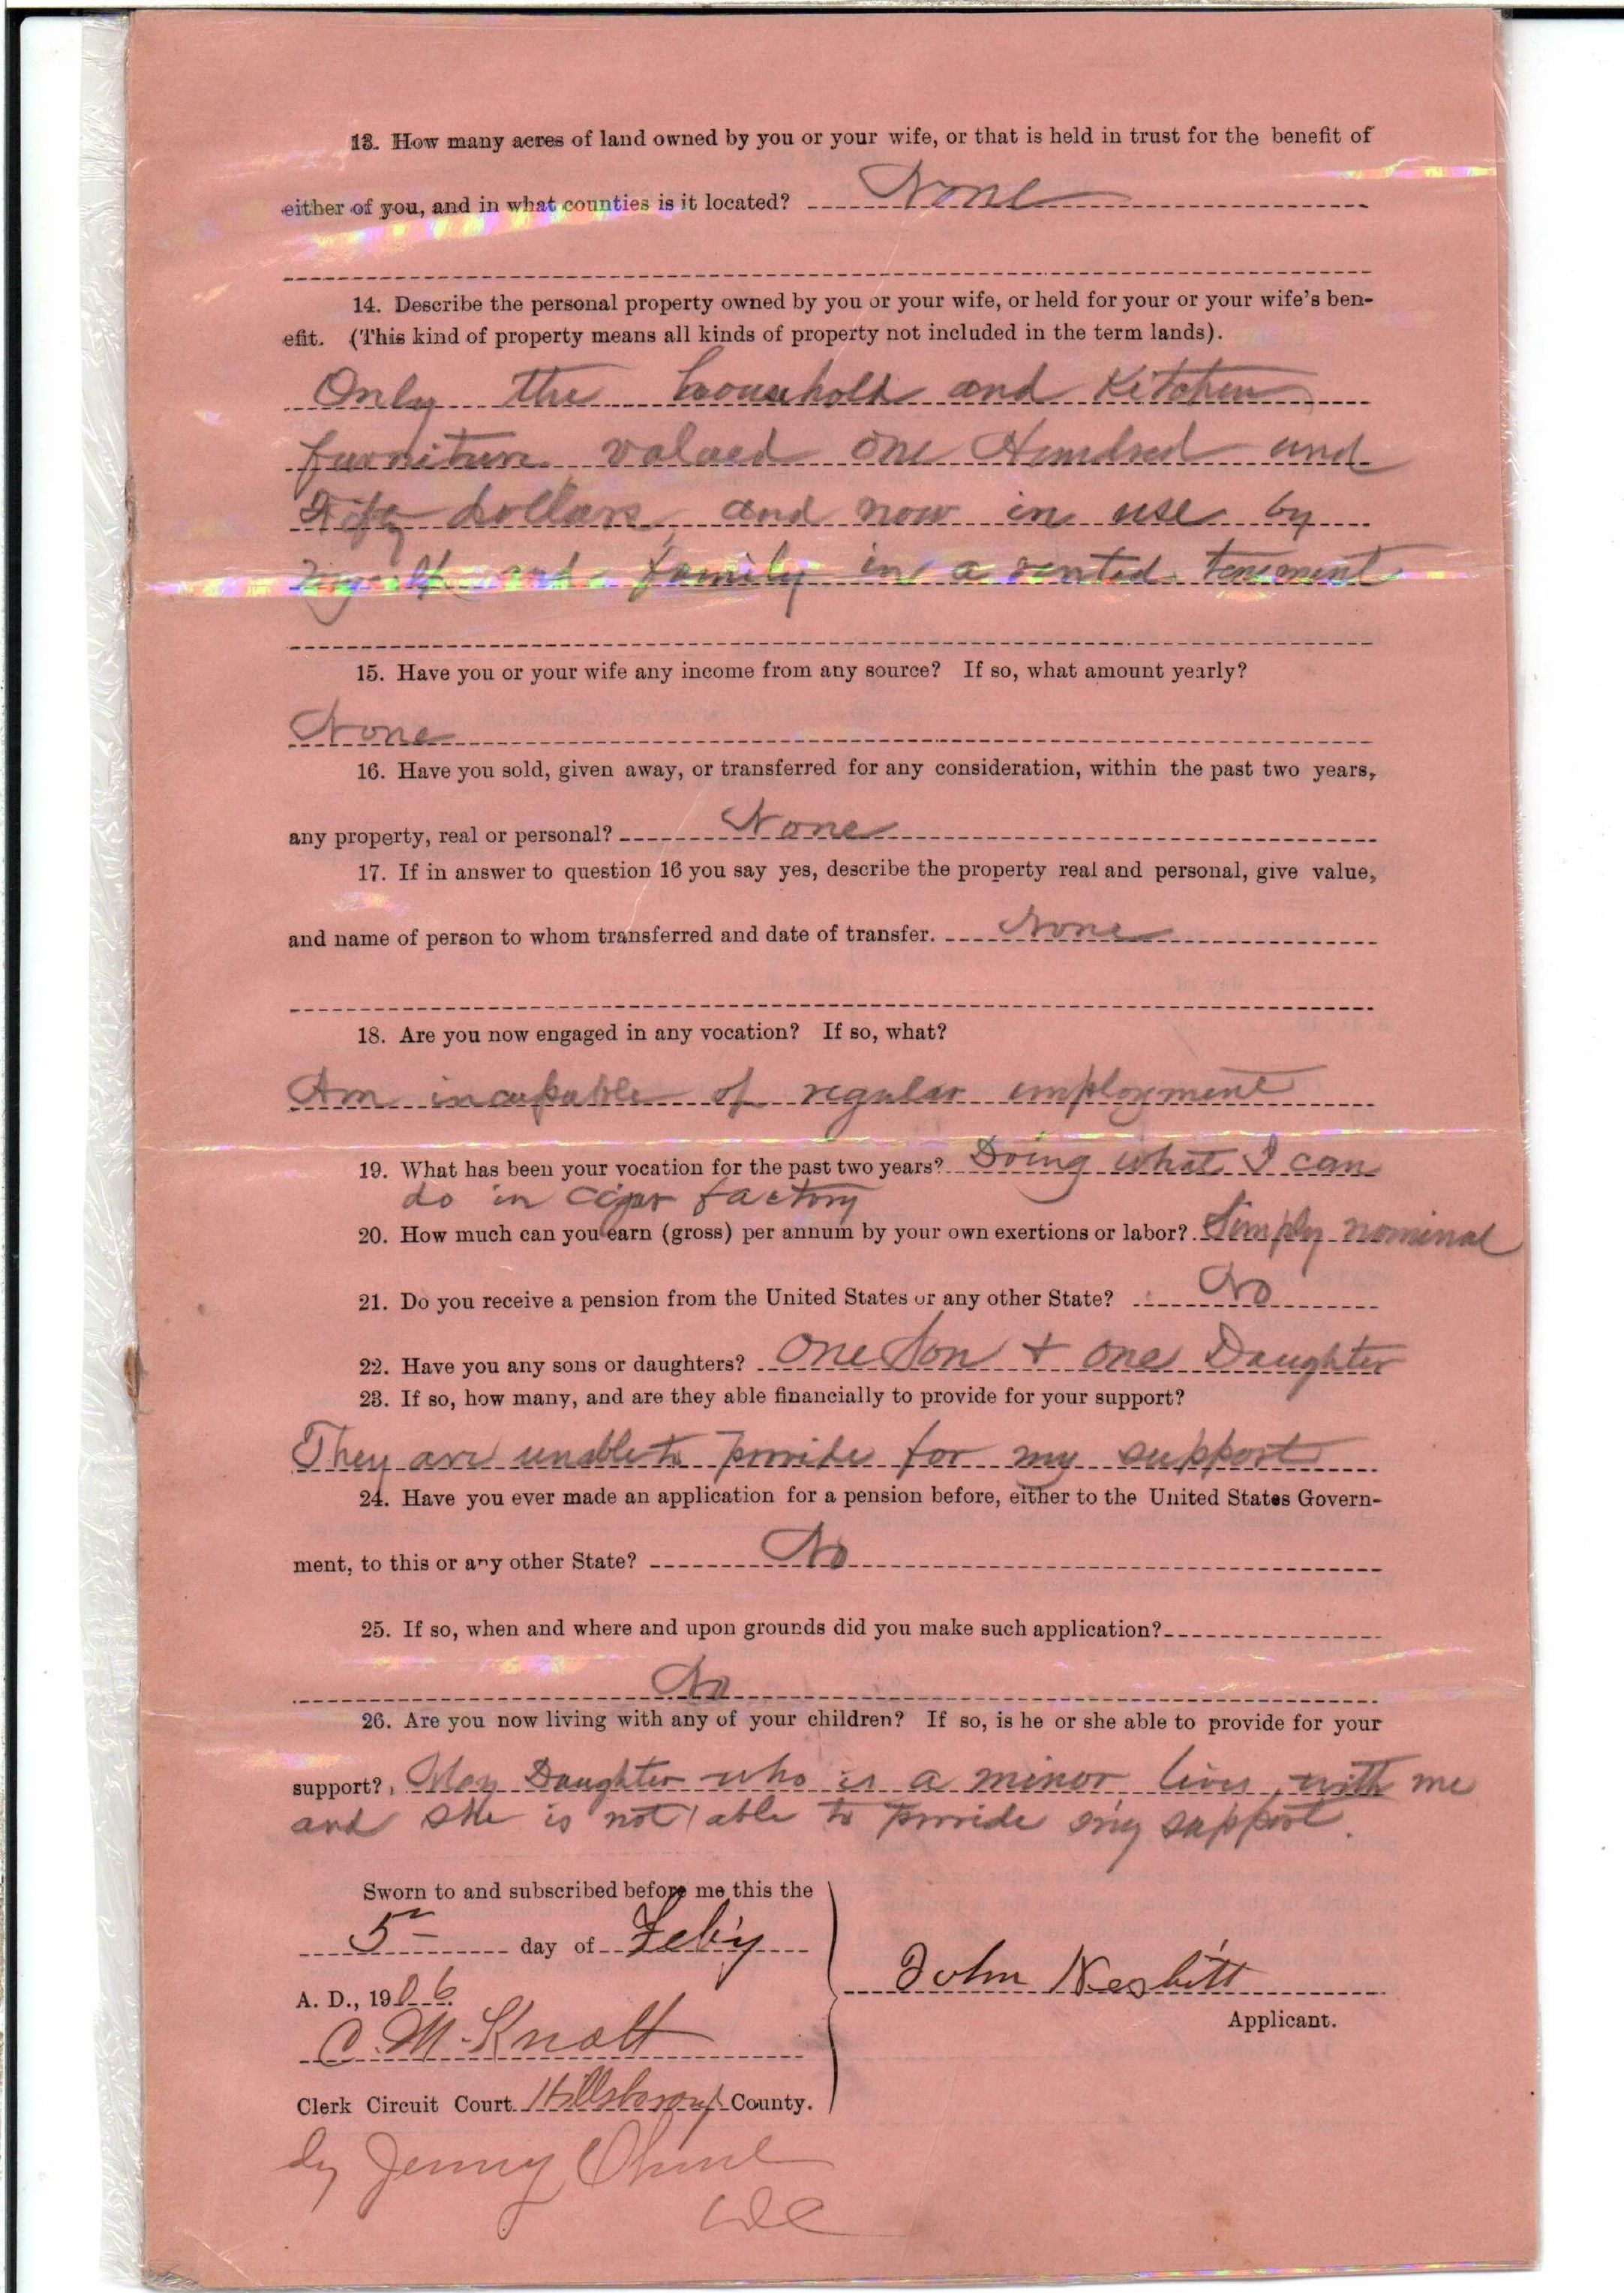 13. How many acres of land owned by you or your wife, or that is held in trust for the benefit of
either of you, and in what counties is it located? None
14. Describe the personal property owned by you or your wife, or held for your or your wife's ben-
efit. (This kind of property means all kinds of property not included in the term lands).
Only the household and Kitchen
furniture valued one Hundred and
Fifty dollars, and now in use by
myself and family in a rented tenement
15. Have you or your wife any income from any source? If so, what amount yearly?
None
16. Have you sold, given away, or transferred for any consideration, within the past two years,
any property, real or personal? None
17. If in answer to question 16 you say yes, describe the property real and personal, give value,
and name of person to whom transferred and date of transfer. None
18. Are you now engaged in any vocation? If so, what?
Am incapable of regular employment
19. What has been your vocation for the past two years? Doing what I can
do in Cigar factory
20. How much can you earn (gross) per annum by your own exertions or labor? Simply nominal
21. Do you receive a pension from the United States or any other State? No
22. Have you any sons or daughters? One Son + one Daughter
23. If so, how many, and are they able financially to provide for your support?
They are unable to provide for my support
24. Have you ever made an application for a pension before, either to the United States Govern-
ment, to this or any other State? No
25. If so, when and where and upon grounds did you make such application?
No
26. Are you now living with any of your children? If so, is he or she able to provide for your
support? Daughter who is a minor lives with me
and she is not able to provide my support.
Sworn to and subscribed before me this the
5 day of Feb'y
A. D., 1906
C. M. Knott
Clerk Circuit Court Hillsboro County.
John Nesbitt
Applicant.
by Jenny
DC